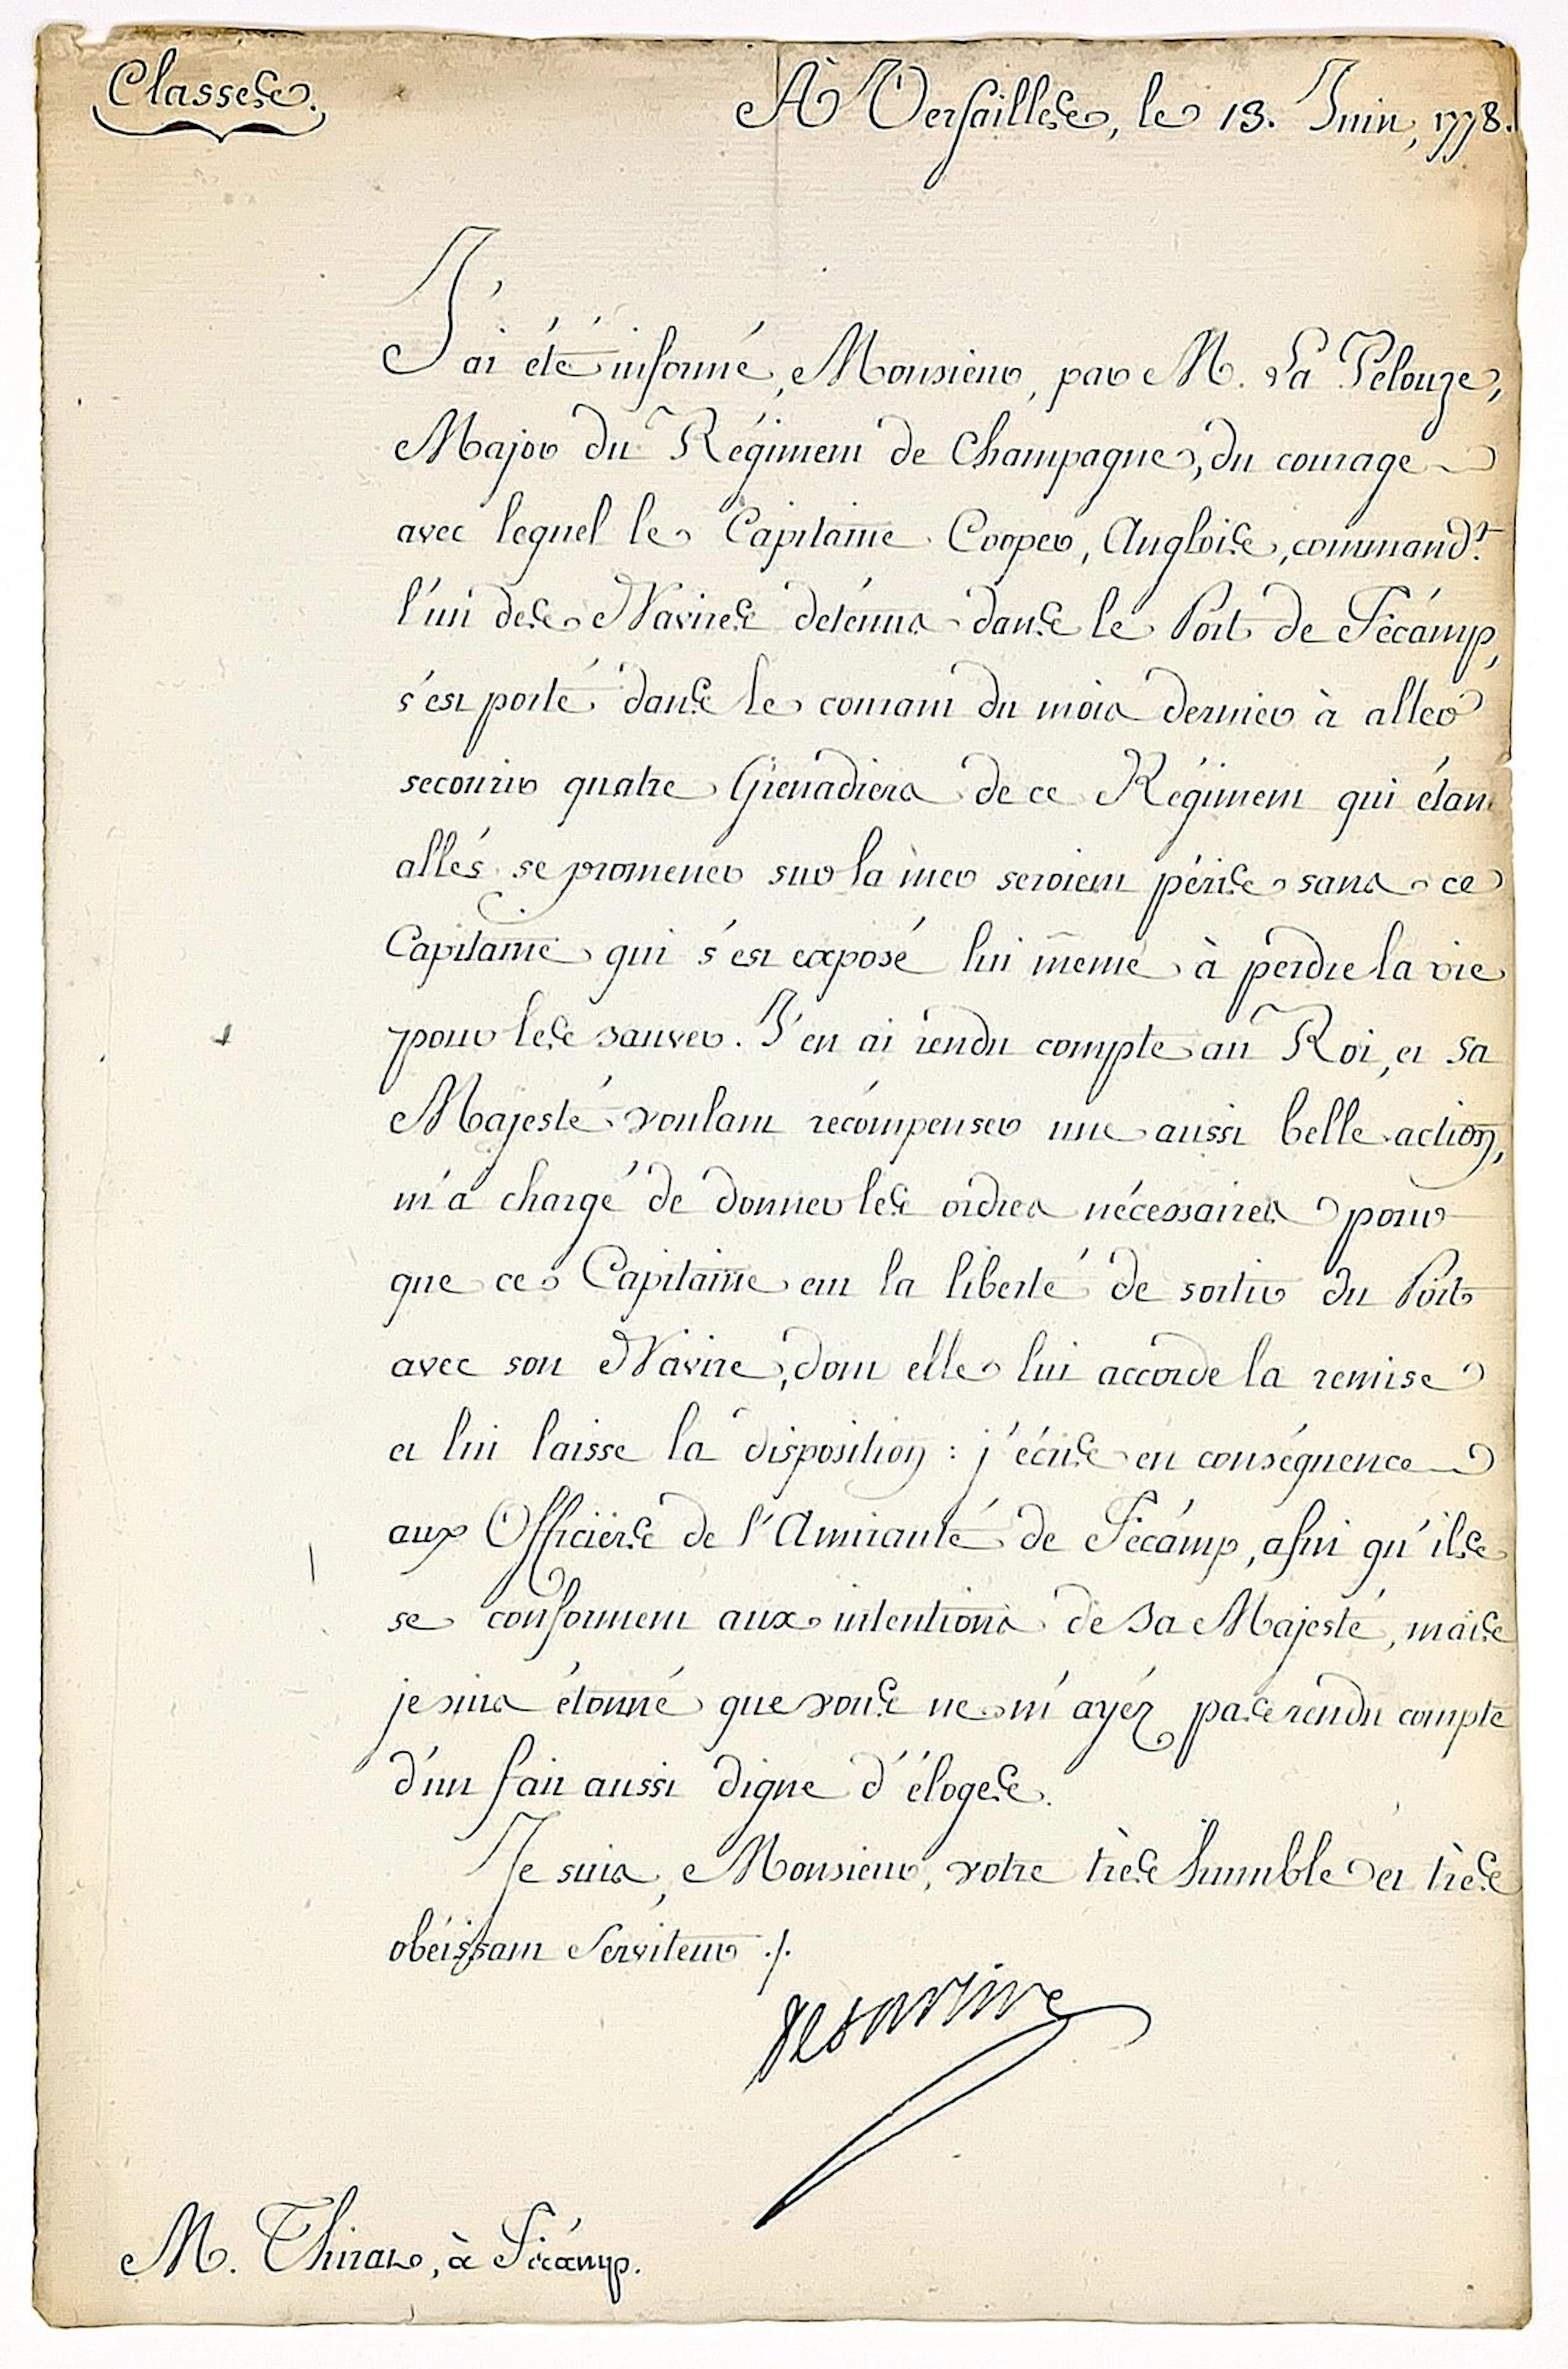 Classes.
À Versailles, le 13. Juin, 1778.
J'ai été informé, Monsieur, par M. La Pelouze,
Major du Régiment de Champagne, du courage
avec lequel le Capitaine Cooper, Anglois, command.t
l'un des Navires detenus dans le Port de Fécamp,
s'est porté dans le courant du mois dernier à aller
secourir quatre Grenadiers de ce Régiment qui étant
allés se promener sur la mer seroient péris sans ce
Capitaine qui s'est exposé lui même à perdre la vie
pour les sauver. J'en ai rendu compte au Roi, et Sa
Majesté voulant récompenser une aussi belle action,
m'a chargé de donner les ordres nécessaires pour
que ce Capitaine eut la liberté de sortir du Port
avec son Navire, dont elle lui accorde la remise
et lui laisse la disposition : j'écris en conséquence
aux Officiers de l'Amirauté de Fécamp, afin qu'ils
se conforment aux intentions de Sa Majesté, mais
je suis étonné que vous ne m'ayéz pas rendu compte
d'un fait aussi digne d'éloges.
Je suis, Monsieur, votre très humble et très
obéissant Serviteur ./.
De Sartine
M. Thirar, à Fécamp.